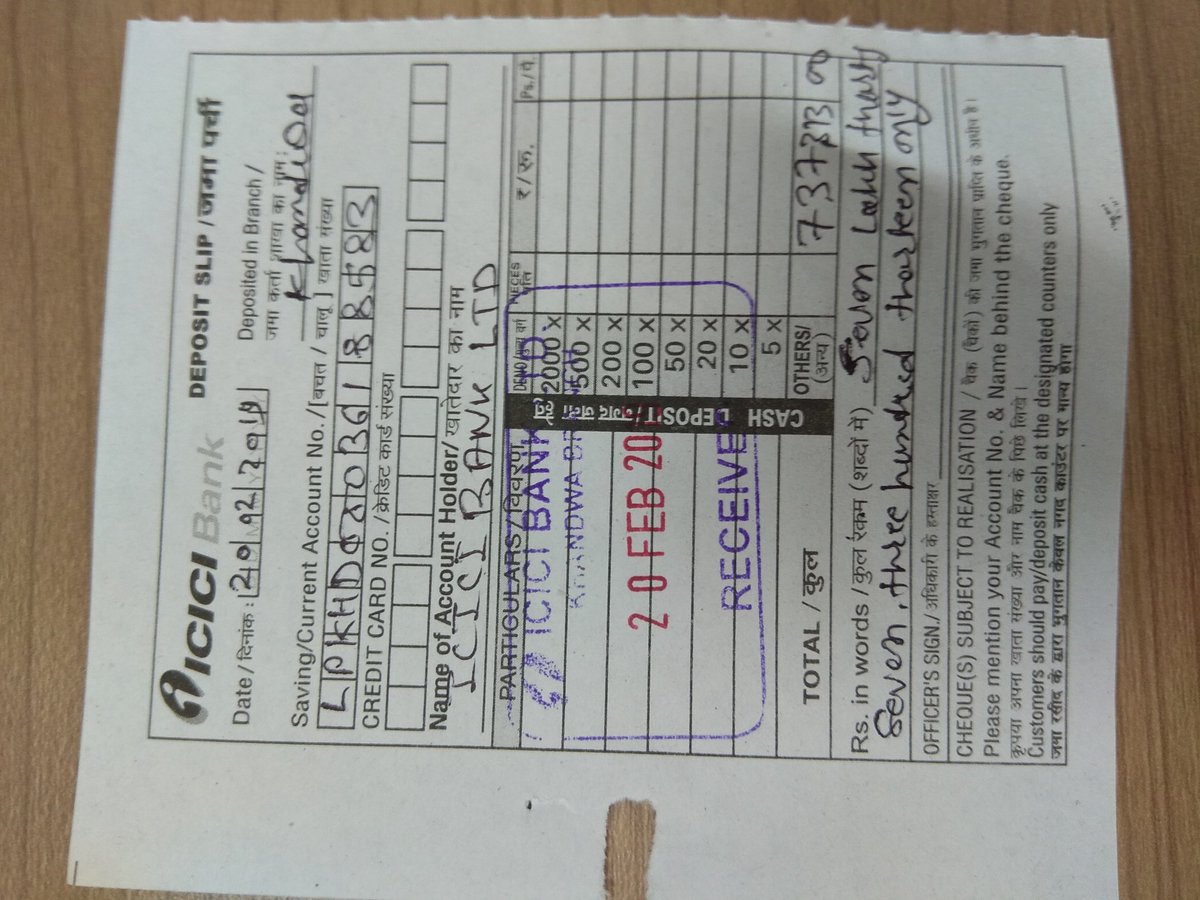 ICICI Bank DEPOSIT SLIP / जमा पर्ची
Date / दिनांक : Deposited in Branch /
जमा कर्ता शाखा का नाम:
Khandwa
Saving/Current Account No. / [बचत / चालू] खाता संख्या
CREDIT CARD NO. / क्रेडिट कार्ड संख्या
Name of Account Holder/ खातेदार का नाम
ICICI BANK LTD
PARTICULARS / विवरण ₹ / रू. Ps. / पै.
CASH DEPOSIT
2000 X
500 X
200 X
100 X
50 X
20 X
10 X
5 X
OTHERS/
(अन्य)
ICICI BANK
KHANDWA
20 FEB 20
RECEIVE
TOTAL / कुल 737313 00
Rs. in words / कुल रकम (शब्दों में) Seven Lakh tharty
Seven, three hundred tharteen only
OFFICER'S SIGN./ अधिकारी के हस्ताक्षर
CHEQUE(S) SUBJECT TO REALISATION / चैक (चैकों) की जमा भुगतान प्राप्ति के अधीन है।
Please mention your Account No. & Name behind the cheque.
कृपया अपना खाता संख्या और नाम चैक के पिछे लिखें।
Customers should pay/deposit cash at the designated counters only
जमा रसीद के द्वारा भुगतान केवल नगद काउंटर पर मान्य होगा